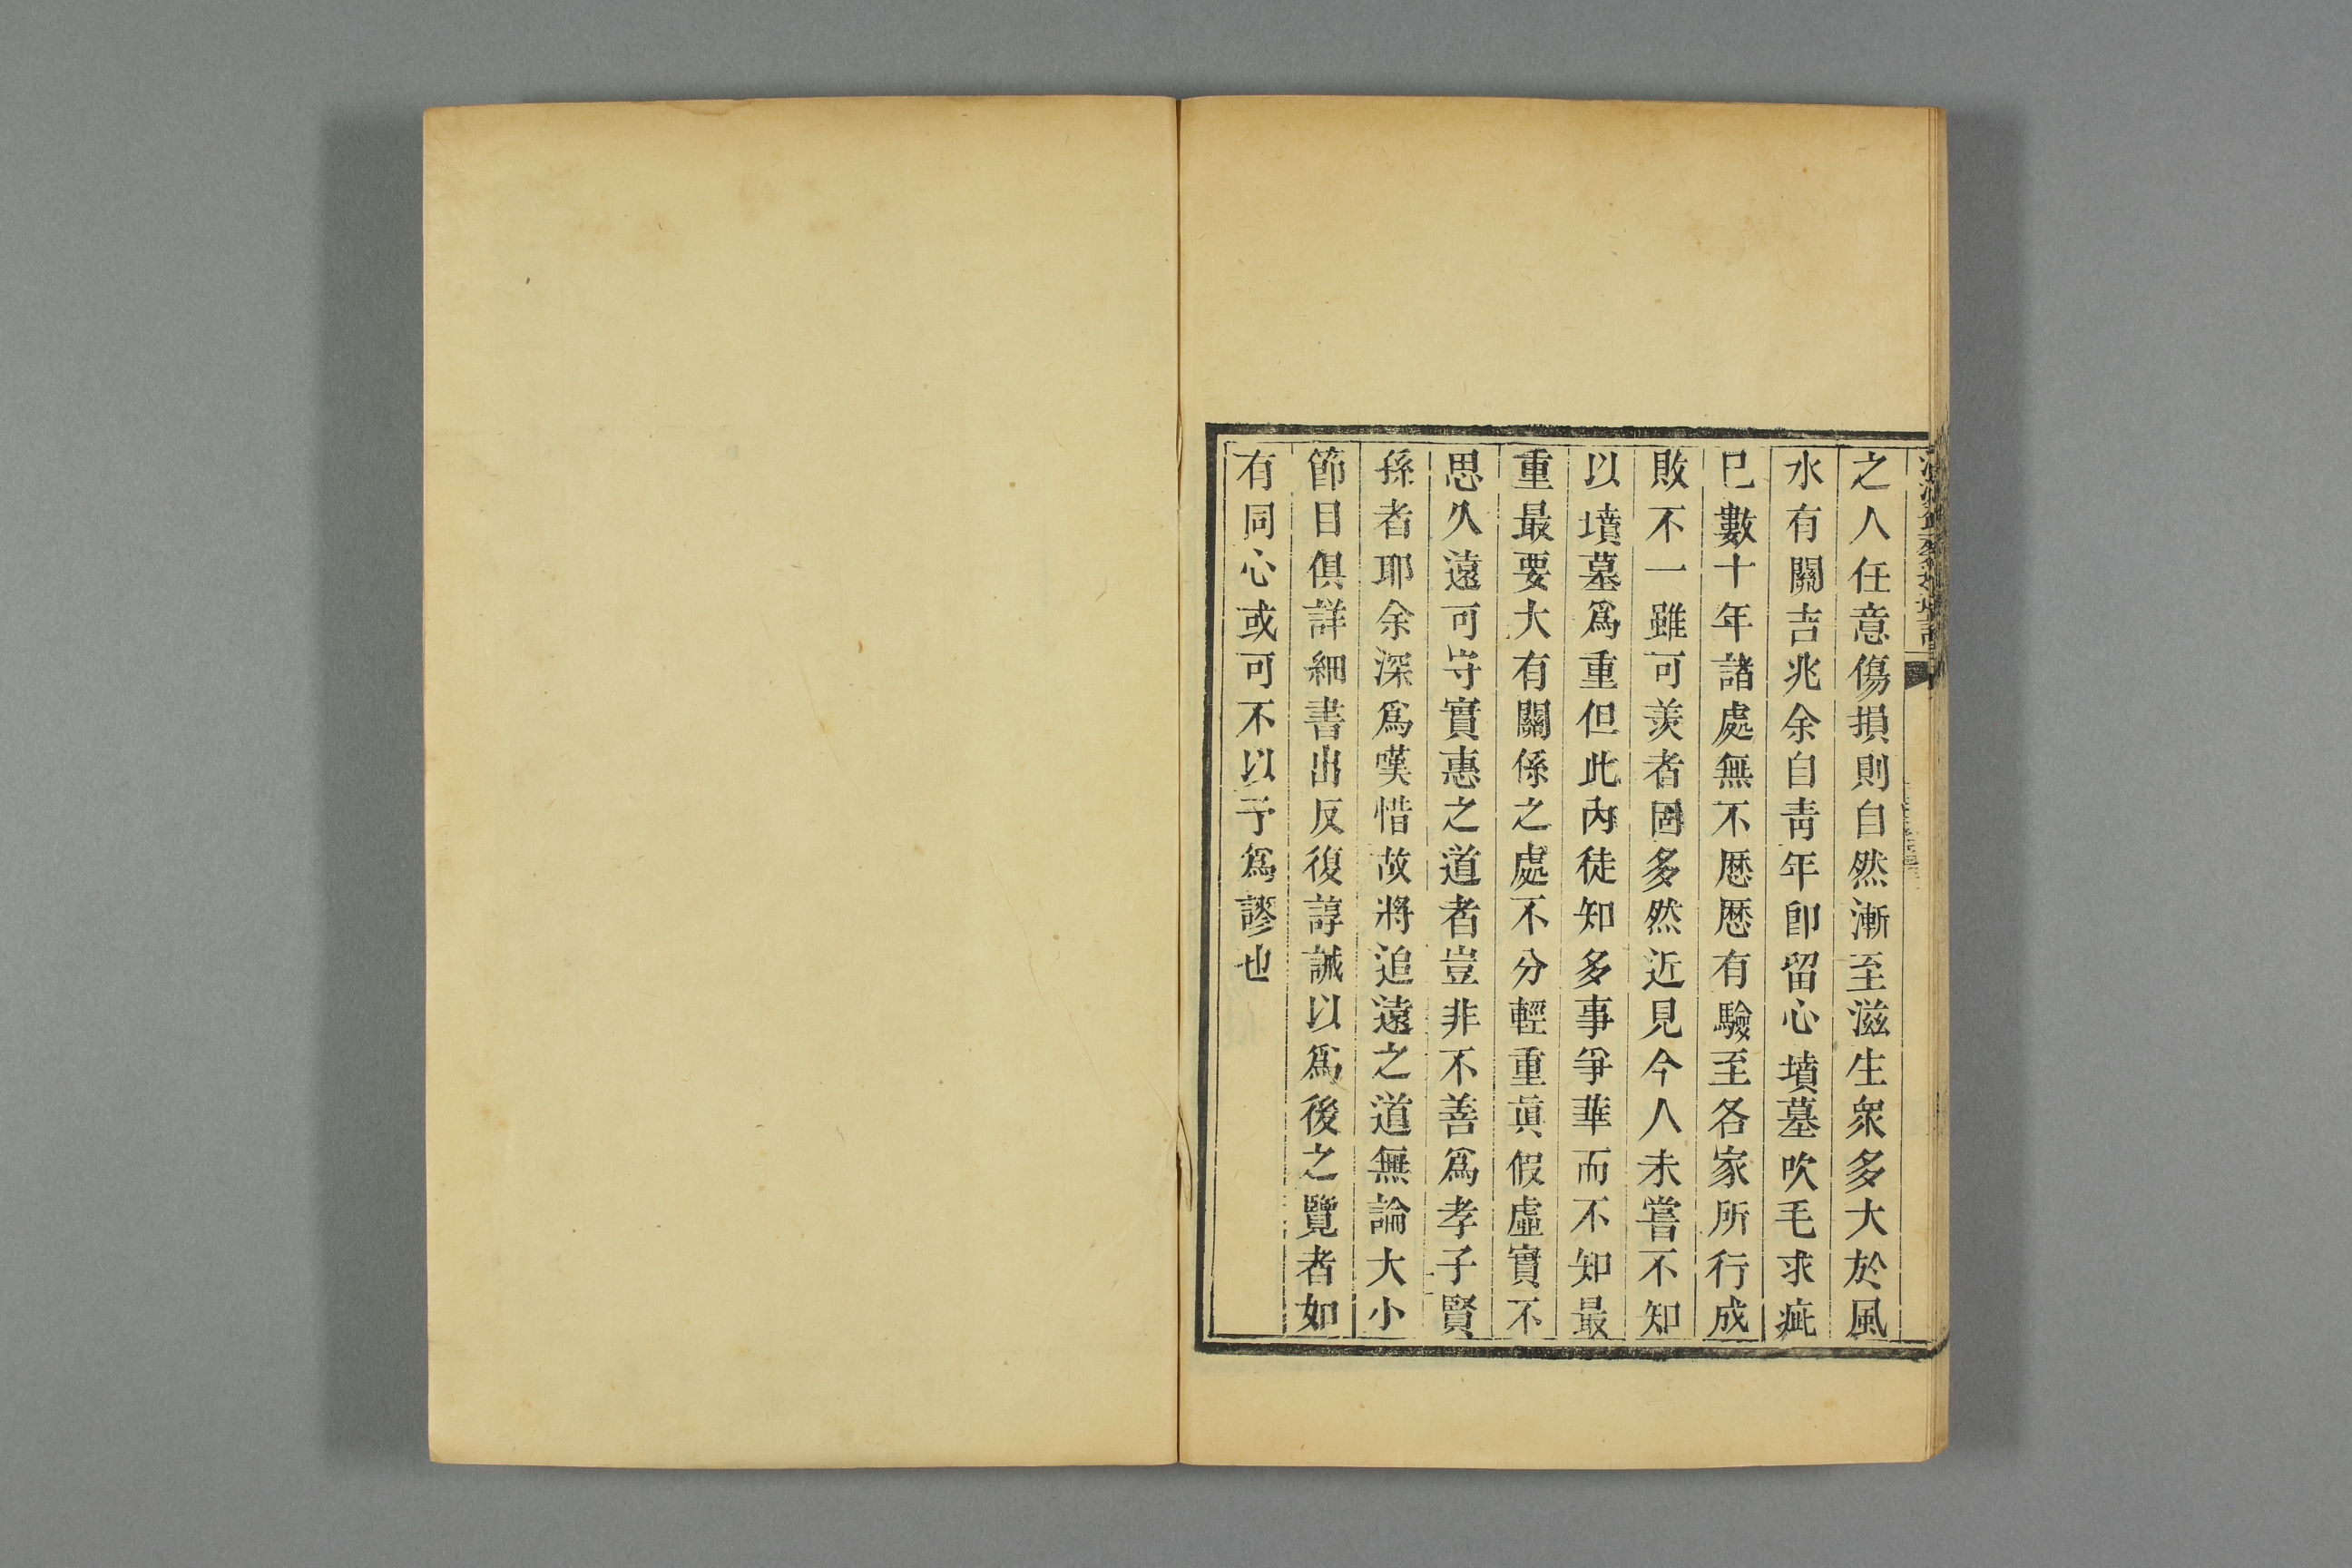 之人任意傷損則自然漸至滋生衆多大於風
水有關吉兆余自靑年卽留心墳墓吹毛求疵
巳數十年諸處無不厯厯有驗至各家所行成
敗不一雖可羨者固多然近見今人未嘗不知
以墳墓爲重但此內徒知多事爭華而不知最
重最要大有關係之處不分輕重眞假虛實不
思久遠可守實惠之道者豈非不善爲孝子賢
孫者耶余深爲嘆惜故將追遠之道無論大小
節目俱詳細書出反復諄誡以爲後之覽者如
有同心或可不以予爲謬也